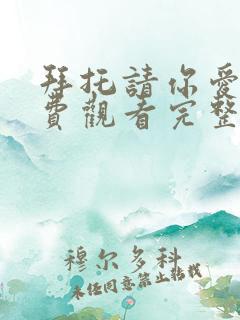 拜托請你愛
費觀看完整
穆尔多科
未经同意禁止转载